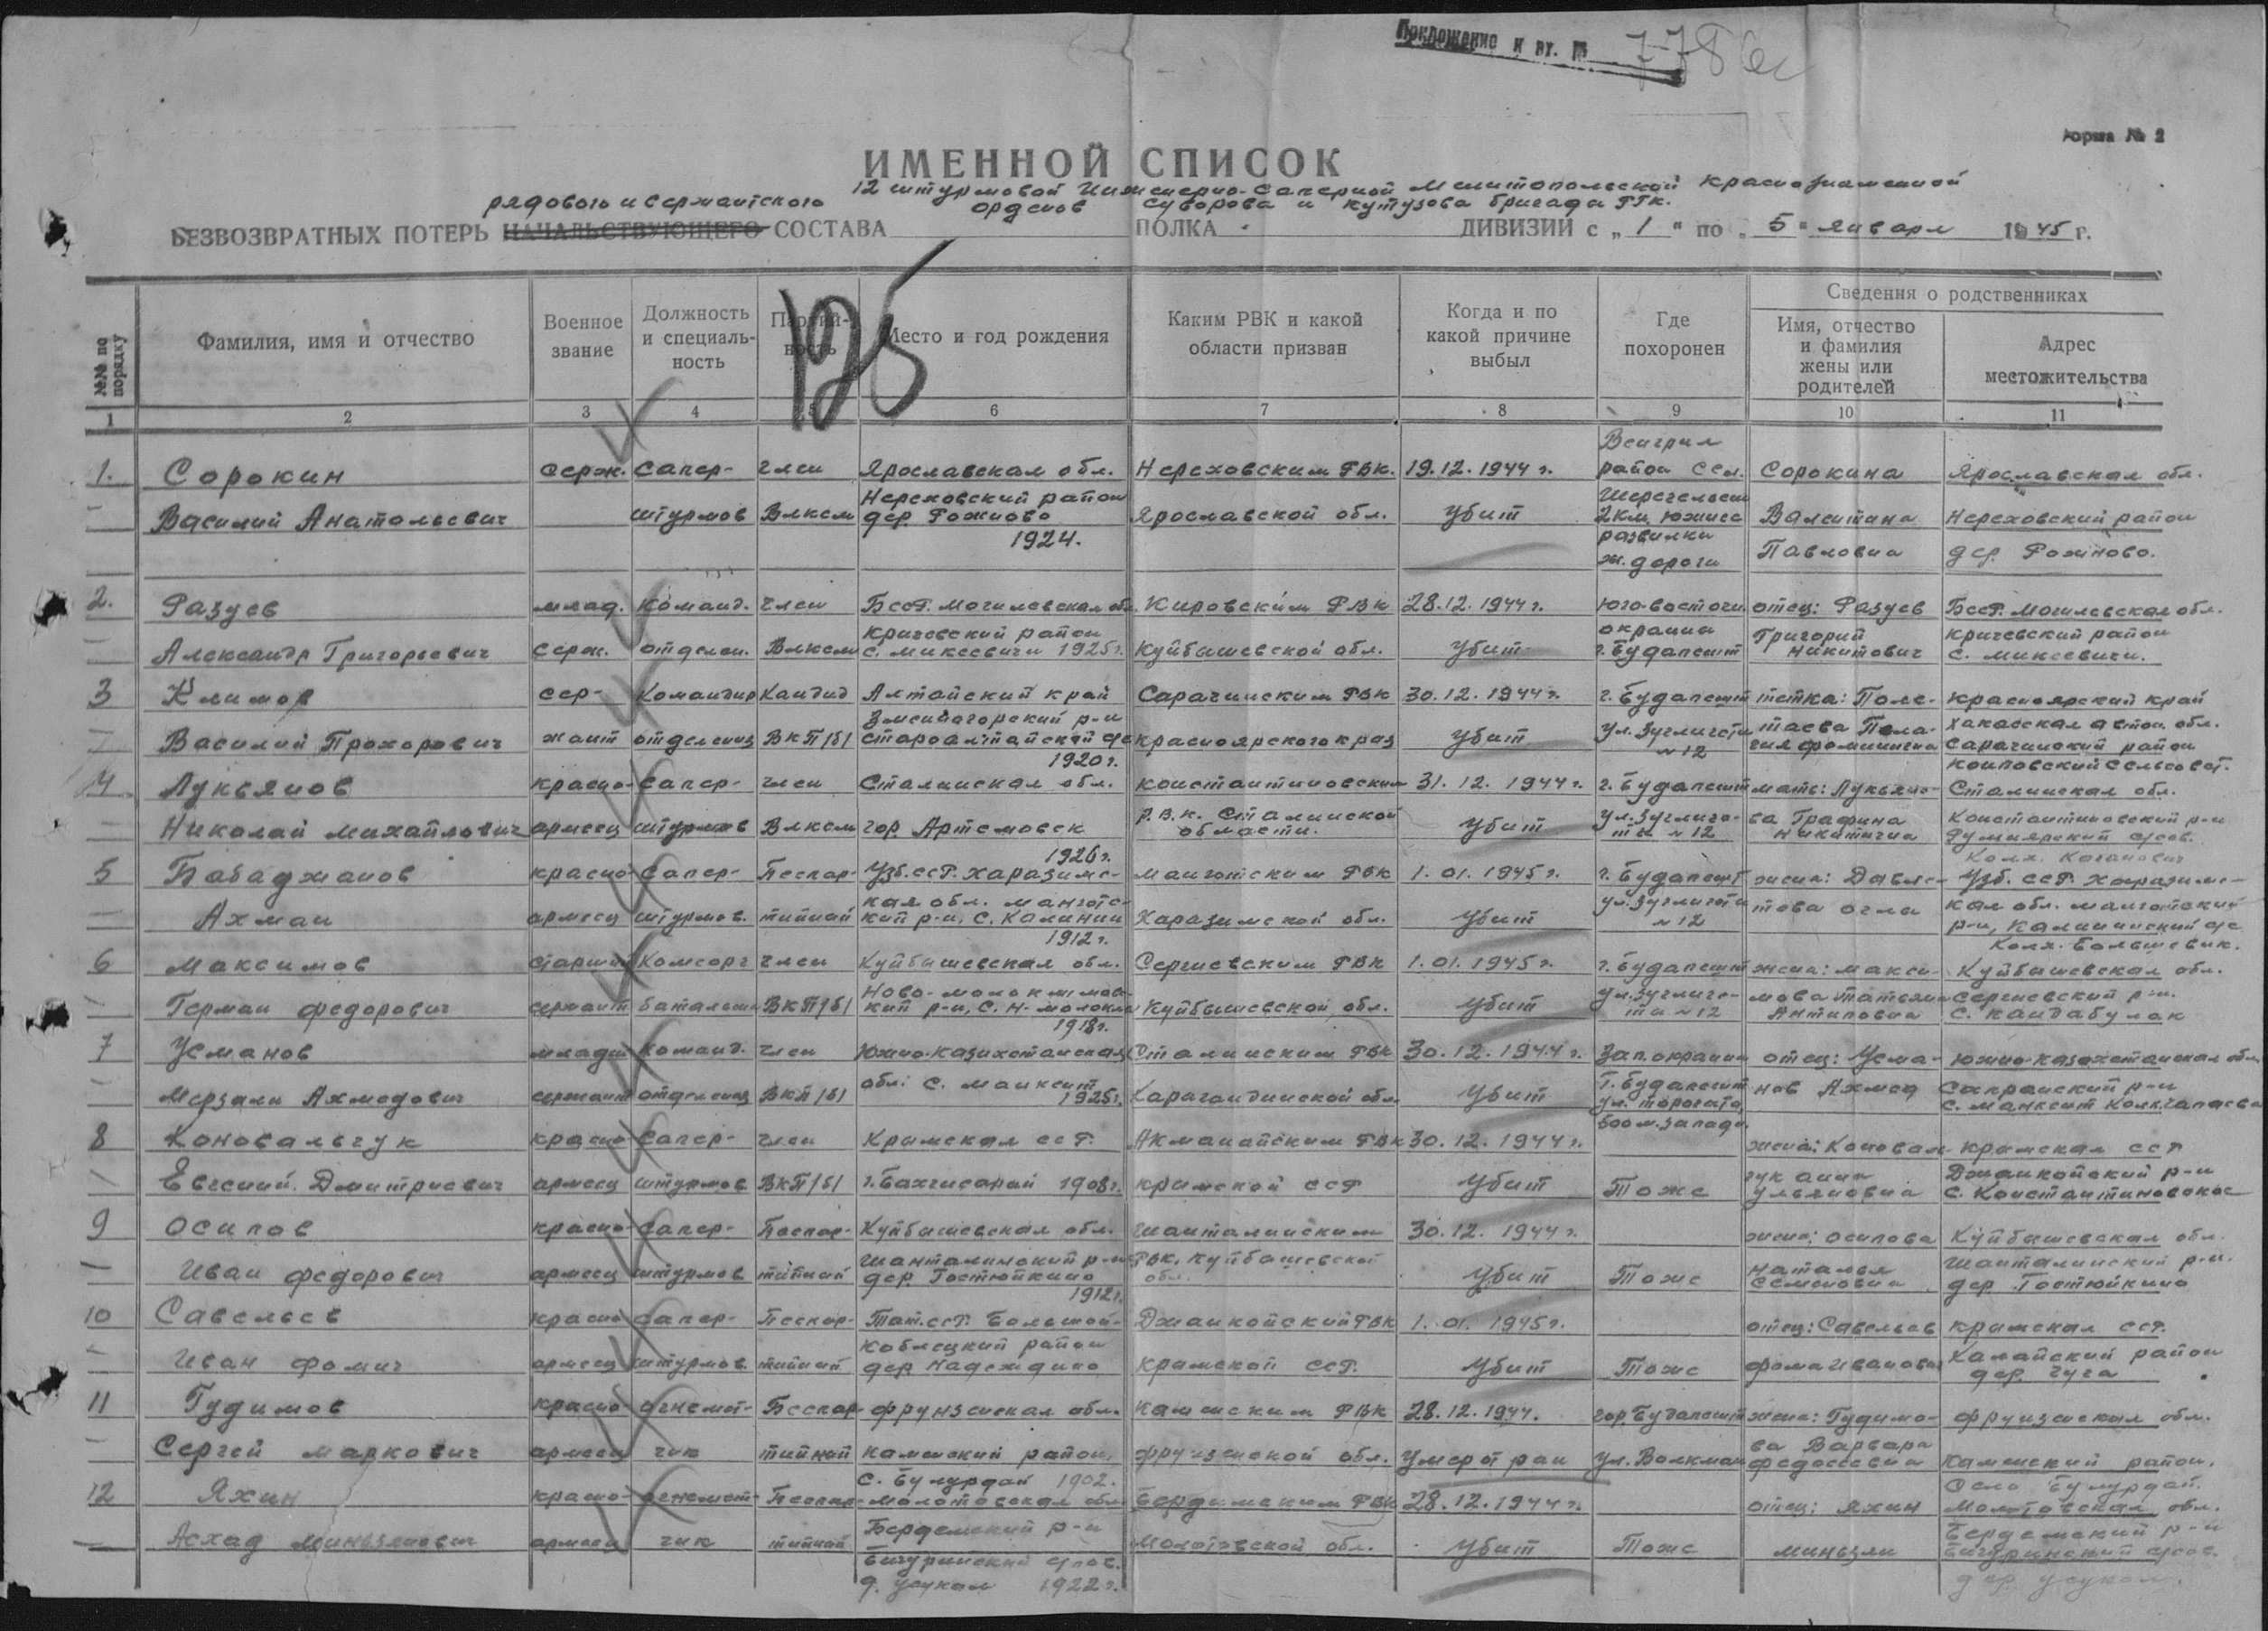 Приложение к вх. №
Форма № 2
ИМЕННОЙ СПИСОК
12 штурмовой Инженерно-Саперной Мелитопольской Краснознаменной
рядового и сержантского орденов Суворова и Кутузова бригада РГК.
БЕЗВОЗВРАТНЫХ ПОТЕРЬ НАЧАЛЬСТВУЮЩЕГО СОСТАВА ПОЛКА ДИВИЗИИ с „1" по „5" января 1945 г.
125
№№ по порядку
Фамилия, имя и отчество
Военное звание
Должность и специальность
Партийность
Место и год рождения
Каким РВК и какой области призван
Когда и по какой причине выбыл
Где похоронен
Сведения о родственниках
Имя, отчество и фамилия жены или родителей
Адрес местожительства
1 2 3 4 5 6 7 8 9 10 11
Венгрия
1. Сорокин серж. Сапер- член Ярославская обл. Нереховским РВК. 19.12.1944 г. район сел. Сорокина Ярославская обл.
Нереховский район
Василий Анатольевич штурмов Влксм дер. Рожново Ярославской обл. убит 2 км. южнее Валентина Нереховский район
1924. развилки
ж. дороги Павловна дер. Рожново.
2. Разуев млад. Команд. член БССР. Могилевская обл. Кировским РВК 28.12.1944 г. Юго-восточн. отец: Разуев БССР. Могилевская обл.
Кричевский район окраина Григорий Кричевский район
Александр Григорьевич серж. отделен. Влксм с. Микеевичи 1925 г. Куйбышевской обл. Убит г. Будапешт Никитович с. Микеевичи.
3 Климов сер- Командир Кандид Алтайский край Сарачинским РВК 30.12.1944 г. г. Будапешт тетка: Поле- Красноярский край
Змеиногорский р-н Хакасская автон. обл.
Василий Прохорович жант отделения ВКП/б/ Староалтайский с/с Красноярского края убит ул. Зуглигети таева Пела- Сарачинский район
1920 г. №12 гия
4 Лукьянов красно- Сапер- член Сталинская обл. Константиновским 31.12.1944 г. г. Будапешт мать: Лукьяно- Сталинская обл.
Николай Михайлович армеец штурмов Влксм гор Артемовск Р.В.К. Сталинской области. убит ул. Зуглиге- ти №12 ва Константиновский р-н
1926 г.
5 Бабаджанов красно- Сапер- Беспар- Узб. ССР. Харазимс- Мангитским РВК 1.01.1945 г. г. Будапешт жена: Давле- Узб. ССР. Харазимс-
кая обл. Мангитс- ул. Зуглигети кая обл. Мангитский
Ахман армеец штурмов. тийный кий р-н, с. Калинин Харазимской обл. убит №12 това огла р-н, Калининский с/с
1912 г. Колх. Большевик.
6 Максимов старший Комсорг член Куйбышевская обл. Сергиевским РВК 1.01.1945 г. г. Будапешт жена: Макси- Куйбышевская обл.
Герман Федорович сержант батальона ВКП/б/ кий р-н, Куйбышевской обл. убит ул. Зуглиге- ти №12 мова Татьяна Антиповна Сергиевский р-н. с. Кандабулак
1918 г.
7 Усманов младш Команд. член Южно-Казахстанская Сталинским РВК 30.12.1944 г. Зап. окраина отец: Усма- Южно-Казахстанская обл.
Мерзали Ахмедович сержант отделения ВКП/б/ обл: с. Манкент 1925 г. Карагандинской обл. убит г. Будапешт нов Ахмед р-н с. Манкент
500 м. запад.
8 Коновальчук красно- Сапер- член Крымская ССР. Акманайским РВК 30.12.1944 г. жена: Коновал- Крымская ССР
Евгений Дмитриевич армеец штурмов ВКП/б/ г. Бахчисарай 1908 г. Крымской ССР убит Тоже чук Анна Ульяновна Джанкойский р-н
9 Осипов красно- Сапер- Беспар- Куйбышевская обл. Шанталинским 30.12.1944 г. жена: Осипова Куйбышевская обл.
Шанталинский р-н РВК, Куйбышевской обл.
Иван Федорович армеец штурмов тийный дер Гостюйкино убит Тоже Наталья Семеновна Шанталинский р-н. дер. Гостюйкино
1912 г.
10 Савельев красно- Сапер- Беспар- Тат. ССР. Джанкойский РВК 1.01.1945 г. отец: Савельев Крымская ССР.
район
Иван Фомич армеец штурмов. тийный дер Надеждино Крымской ССР. убит Тоже Фома Иванович район
11 Гудимов красно- огнемет- Беспар- Фрунзенская обл. Каменским РВК 28.12.1944. гор. Будапешт жена: Гудимо- Фрунзенская обл.
Сергей Маркович армеец чик тийный Каменский район, Фрунзенской обл. Умер от ран ул. Волкман ва Варвара Федосеевна Каменский район,
1902.
12 Яхин красно- огнемет- Беспар- Молотовская обл. Бардымским РВК 28.12.1944 г. отец: Яхин Молотовская обл.
Асхад армеец чик тийный р-н Молотовской обл. убит Тоже
1922 г.